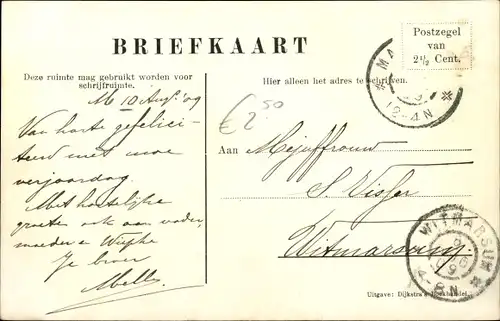 BRIEFKAART
Postzegel
van
2½ Cent.
Deze ruimte mag gebruikt worden voor
schrijfruimte.
Hier alleen het adres te schrijven.
M 10 Aug. '09
€ 2.50
Van harte gefelici-
teerd met uwe
verjaardag.
Met hartelijke
groete ook aan vader,
moeder e Wiepke
Je broer
Melle
Aan Mejuffrouw
S. Visser
Witmarsum.
12-4N
WITMARSUM
4-8N
Uitgave: Dijkstra's Boekhandel.